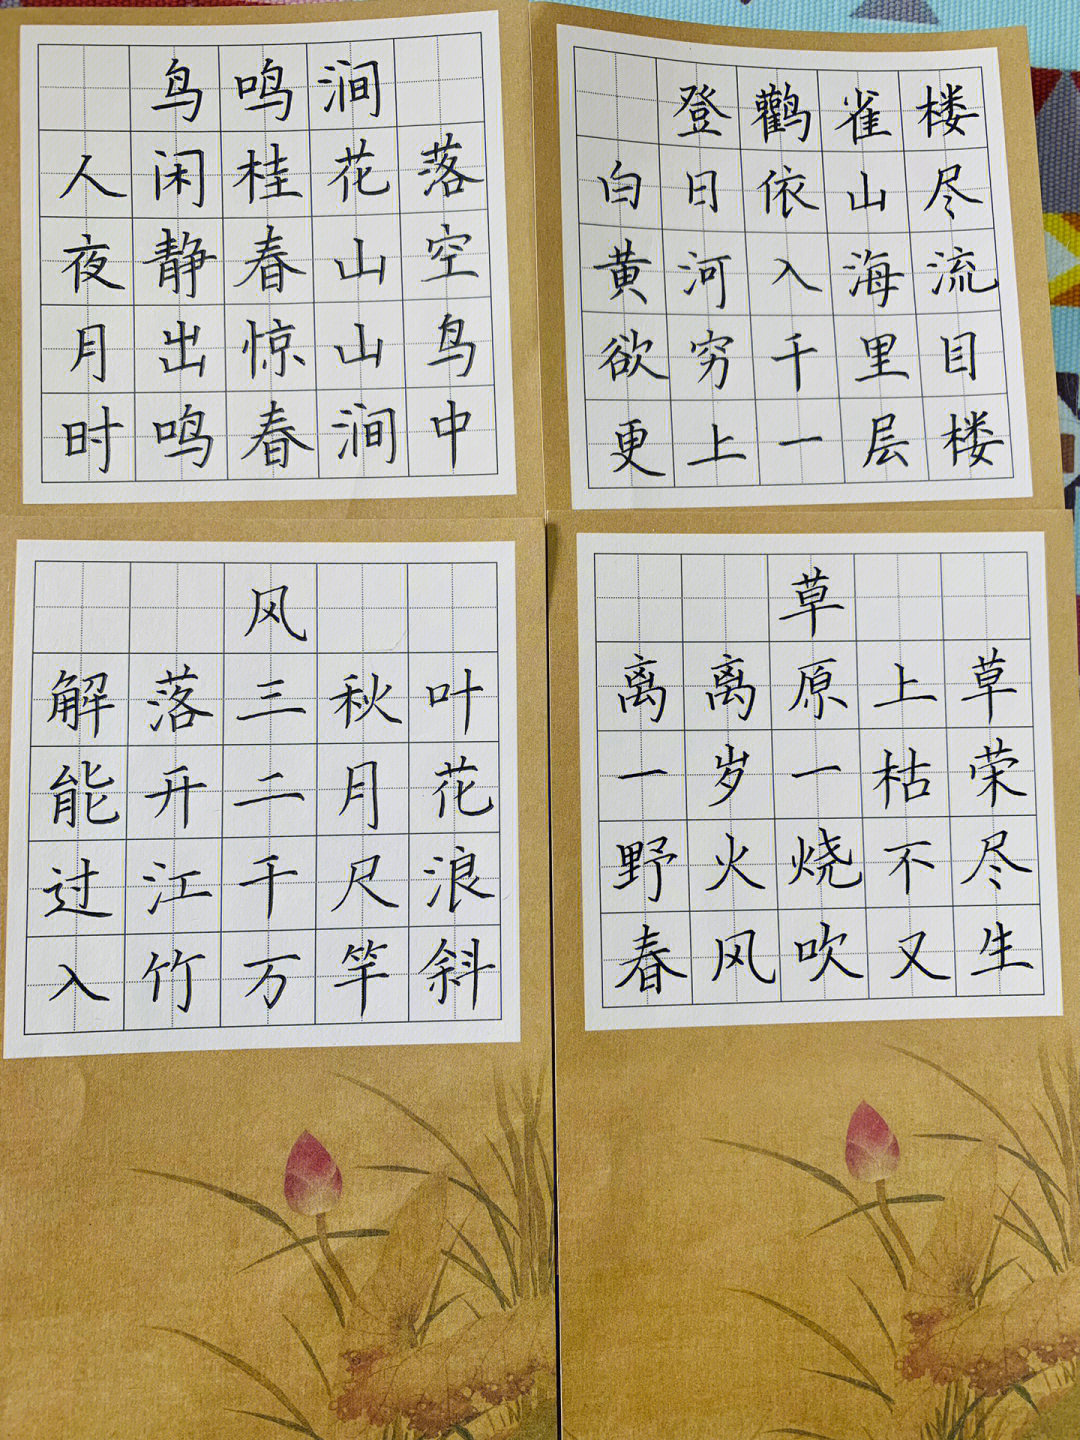 鸟鸣涧
人闲桂花落
夜静春山空
月出惊山鸟
时鸣春涧中
登鹳雀楼
白日依山尽
黄河入海流
欲穷千里目
更上一层楼
风
解落三秋叶
能开二月花
过江千尺浪
入竹万竿斜
草
离离原上草
一岁一枯荣
野火烧不尽
春风吹又生